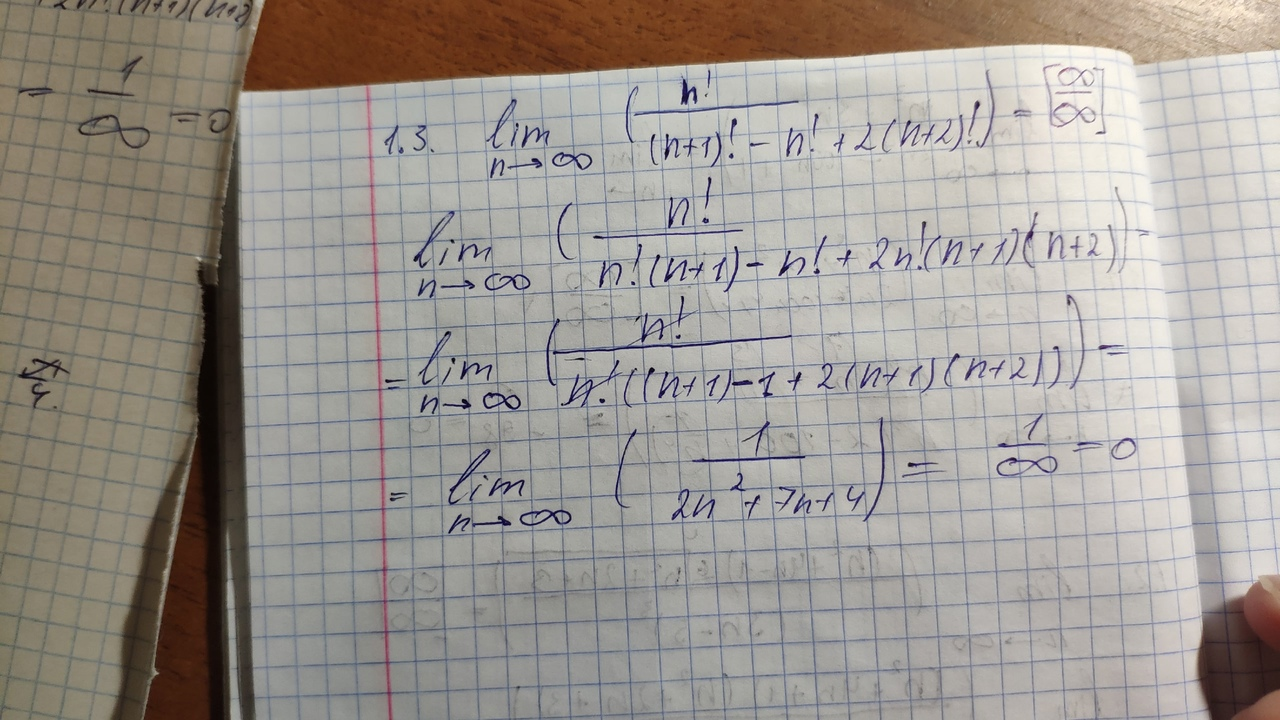 2n!(n+1)(n+2)
= 1/∞ = 0
1.3. lim n→∞ (n! / (n+1)! - n! + 2(n+2)!) = [∞/∞]
lim n→∞ (n! / n!(n+1) - n! + 2n!(n+1)(n+2)) =
= lim n→∞ (n! / n!((n+1) - 1 + 2(n+1)(n+2))) =
= lim n→∞ (1 / 2n² + 7n + 4) = 1/∞ = 0